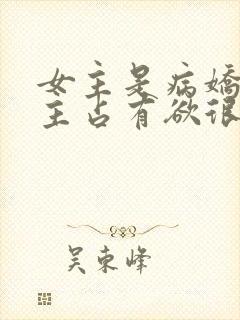 女主是病娇
主占有欲很
吴东峰